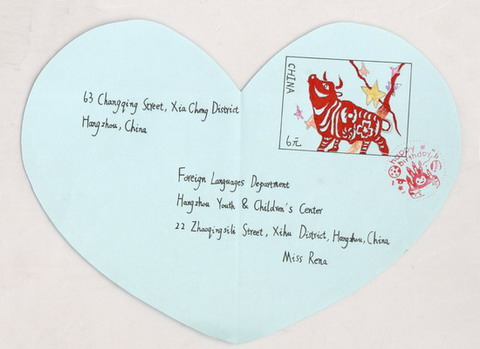 63 Changqing Street, Xia Cheng District
Hangzhou, China
CHINA
6元
Happy
birthday
Foreign Languages Department
Hangzhou Youth & Children's Center
22 Zhaoqingsili Street, Xihu District, Hangzhou, China
Miss Rena